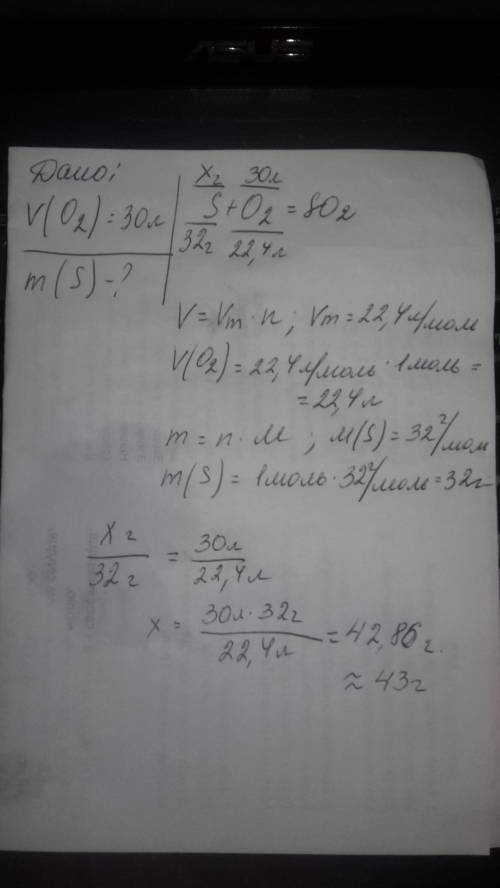 ASUS
Дано:
V(O₂)=30л
m(S)-?
xг 30л
S+O₂=SO₂
32г 22,4л
V=Vm·n; Vm=22,4л/мол
V(O₂)=22,4л/моль·1моль=
=22,4л
m=n·M; M(S)=32г/мол
m(S)=1моль·32г/мол=32г
xг/32г = 30л/22,4л
x = 30л·32г/22,4л = 42,86г.
≈43г